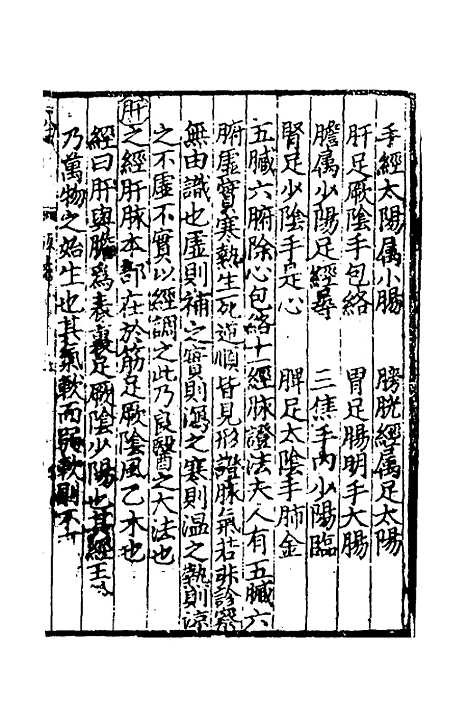 手經太陽属小腸　膀胱經属足太陽
肝足厥陰手包絡　胃足腸明手大腸
膽属少陽足經尋　三焦手内少陽臨
腎足少陰手是心　脾足太陰手肺金
五臟六腑除心包絡十一經脉證法夫人有五臟六
腑虚實寒熱生死逆順皆見形證脉氣若非診察
無由識也虚則補之實則瀉之寒則温之熱則凉
之不虚不實以經調之此乃良醫之大法也
肝之經肝脉本部在於筋足厥陰風乙木也
經曰肝與膽爲表裏足厥陰少陽也其經王
乃萬物之始生也其氣軟而弱軟則不